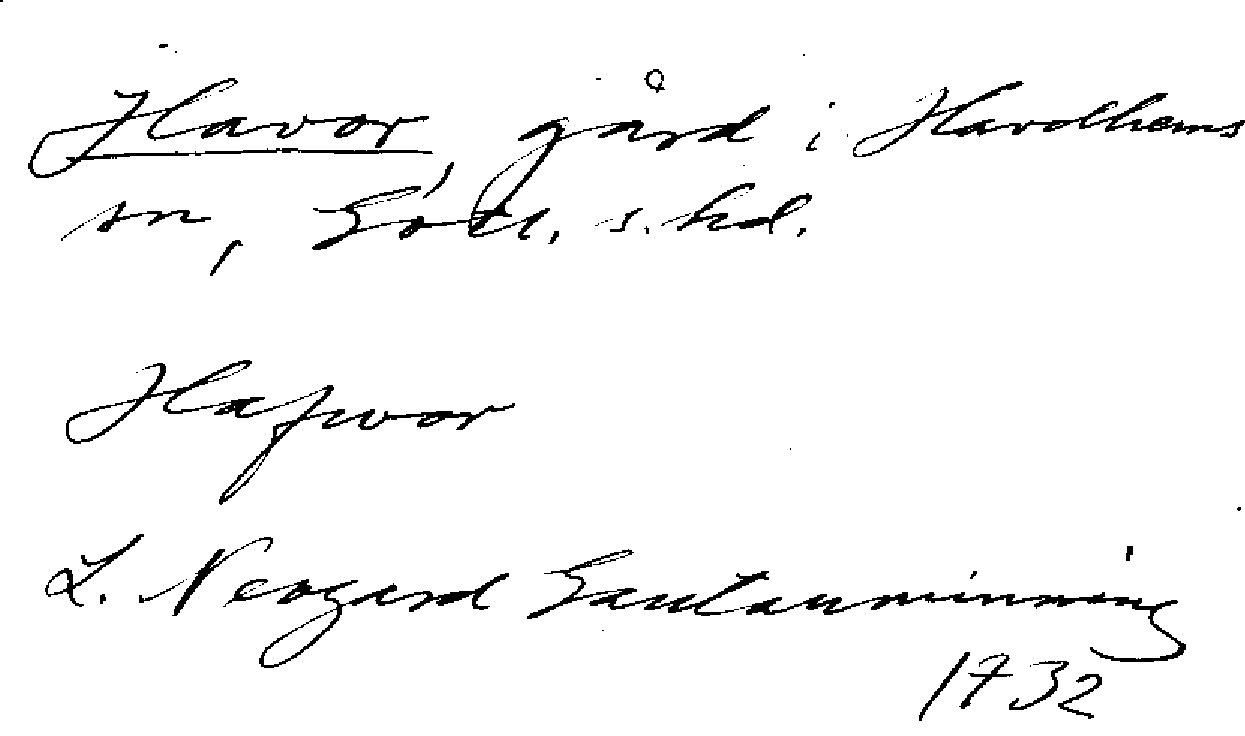 Havor, gård i Hardhems
sn, Gotl. s. hd.
Hafwor
L. Neogard Gautauminning
1732